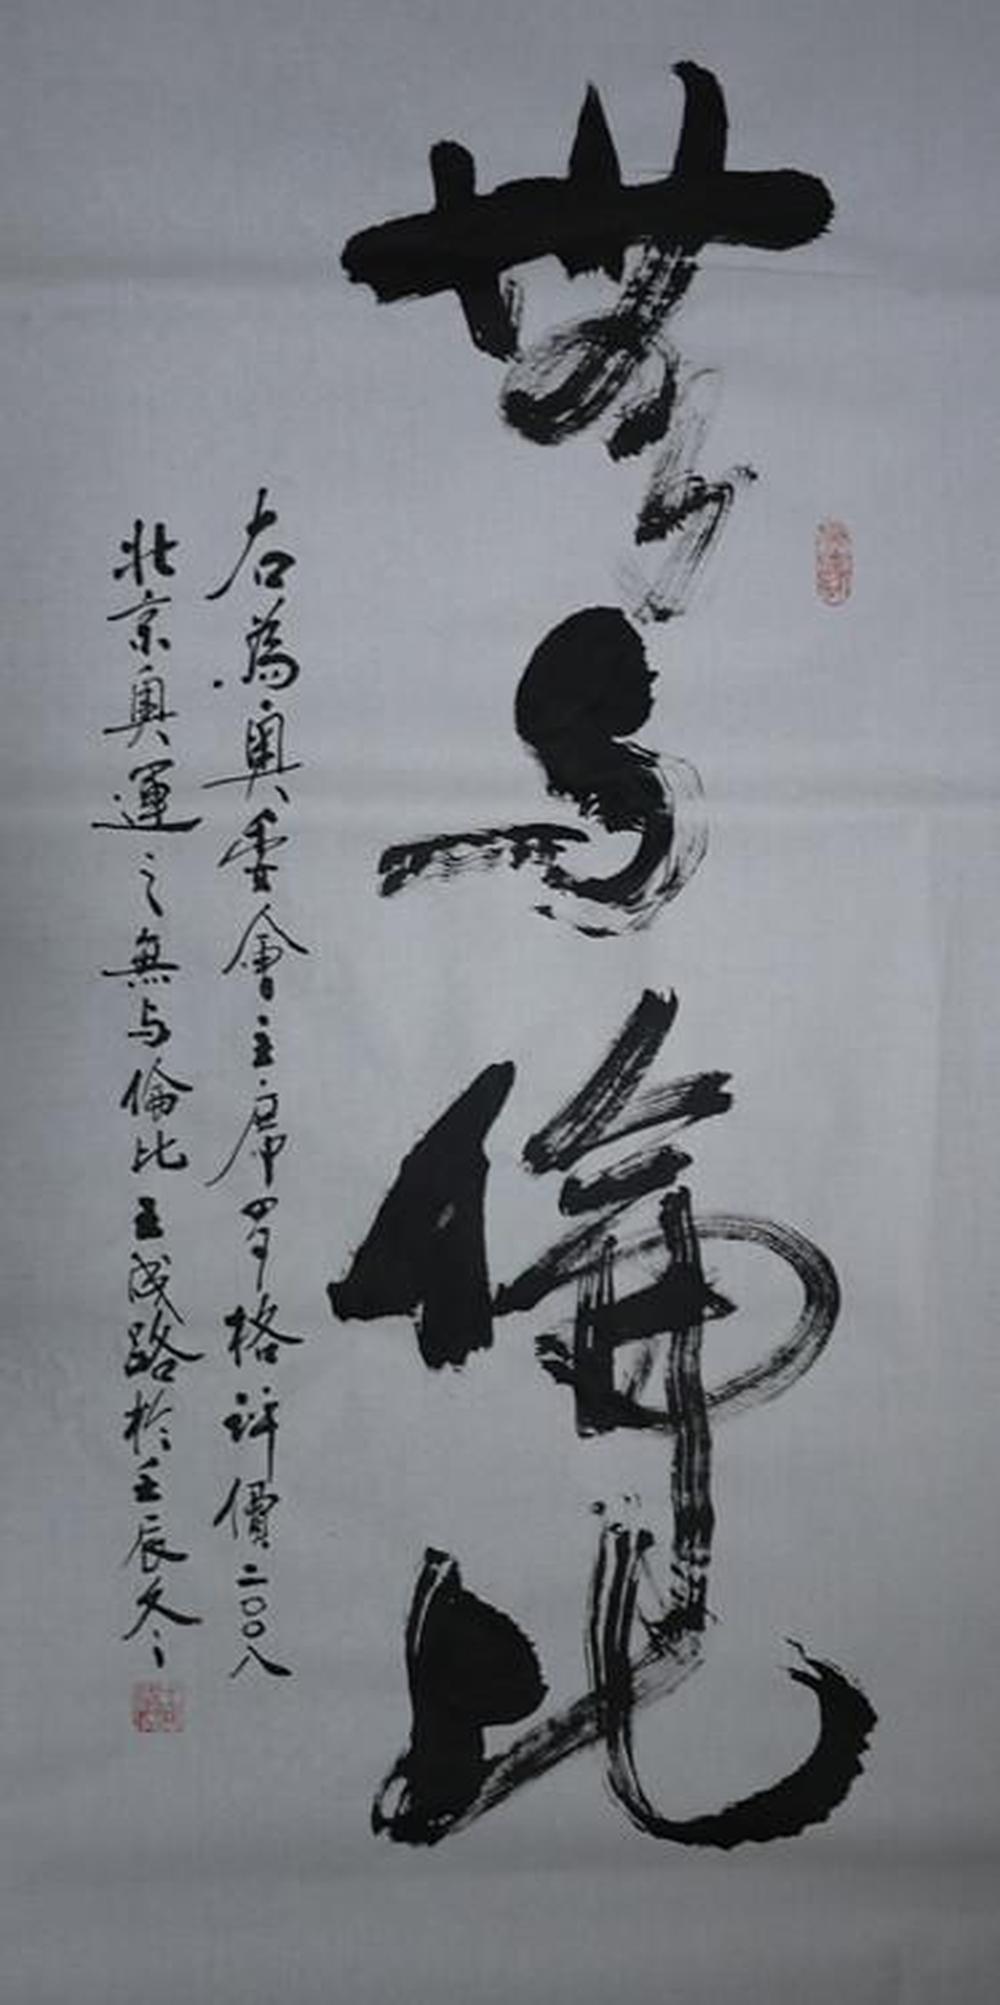 無与倫比
右為奧委會主席罗格評價二〇〇八
北京奧運之無与倫比王成路於壬辰冬